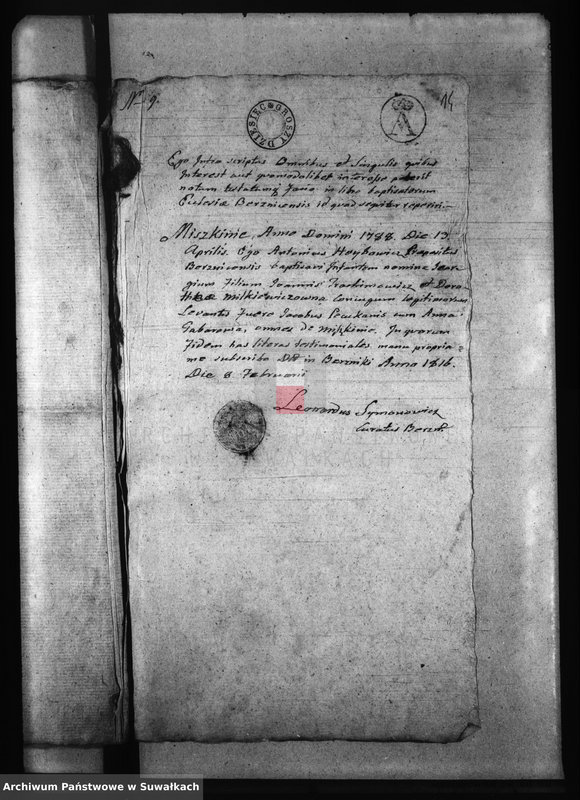 Nro 9.
14
DZIESIĘC GROSZY
A
Ego Infra scriptus Omnibus et Singulis quibus
Interest aut quomodolibet interesse poterit
notum testatumq facio in libro baptisatorum
Eclesiæ Berznicensis id quod sequitur reperiri.
Miszkinie, Anno Domini 1788. Die 13
Aprilis. Ego Antonius Praepositus
Berznicensis baptisavi Infantem nomine Geor-
gium Filium Joannis Trochimowicz et Doro-
theæ Milkiewiczowna Coniugum legitimorum
Levantes Fuere Jacobus cum Anna
omnes de Miszkinie. In quorum
Fidem has literas testimoniales manu propria
me subscribo Dtt in Berzniki Anno 1816.
Die 8 Februarii
Leonardus Symonowicz
Curatus Berzn.
Archiwum Państwowe w Suwałkach